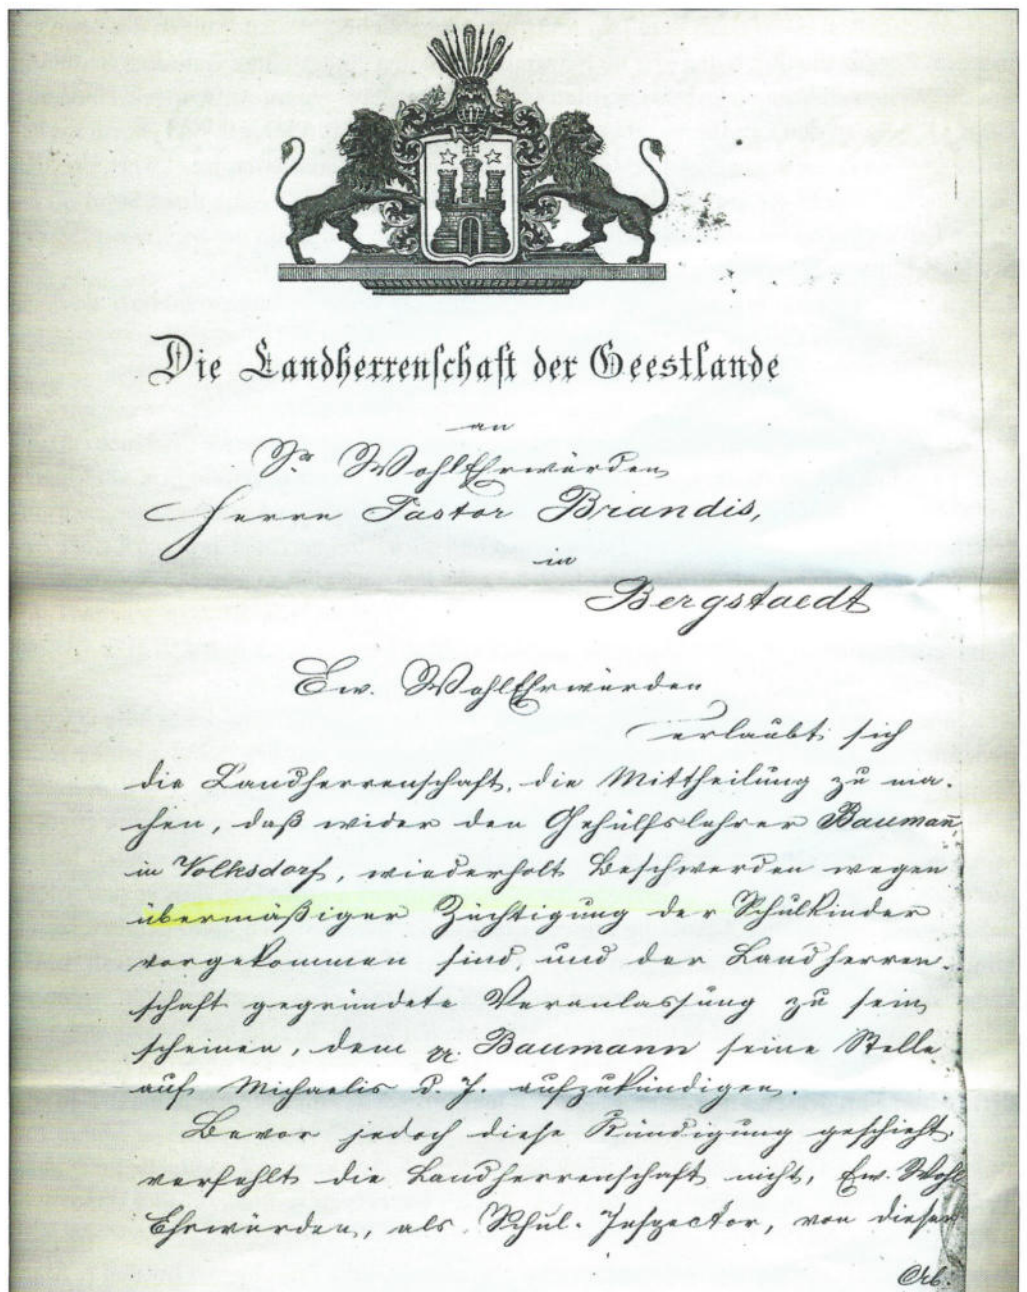 Die Landherrenschaft der Geestlande
an
Sr. WohlEhrwürden
Herrn Pastor Brandis,
in
Bergstaedt
Ew. WohlEhrwürden
erlaubt sich
die Landherrenschaft, die Mittheilung zu ma-
chen, daß wider den Gehülfslehrer Baumañ,
in Volksdorf, wiederholt Beschwerden wegen
übermäßiger Züchtigung der Schulkinder
vorgekommen sind, und der Landherren-
schaft gegründete Veranlassung zu sein
scheinen, dem pp. Baumann seine Stelle
auf Michaelis d. J. aufzukündigen.
Bevor jedoch diese Kündigung geschieht,
verfehlt die Landherrenschaft nicht, Ew. Wohl
Ehrwürden, als Schul-Inspector, von dieser